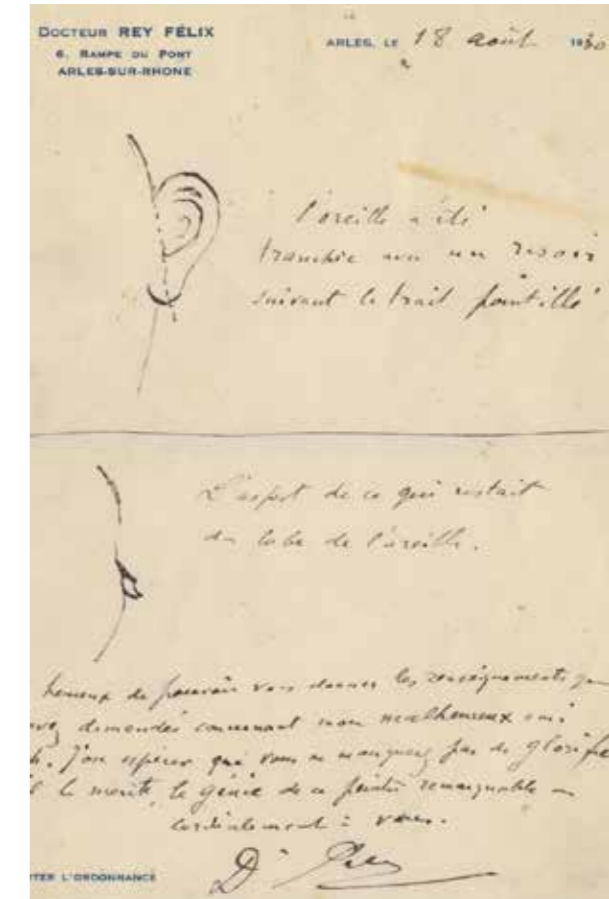 DOCTEUR REY FÉLIX
6, RAMPE DU PONT
ARLES-SUR-RHONE
ARLES, LE 18 août 1930
l'oreille a été
tranchée avec un rasoir
suivant le trait pointillé
L'aspect de ce qui restait
du lobe de l'oreille.
heureux de pouvoir vous donner les renseignements que
avez demandés concernant mon malheureux ami
h. J'ose espérer que vous ne manquerez pas de glorifie
le mérite, le génie de ce peintre remarquable
cordialement à vous.
Dr Rey
TER L'ORDONNANCE